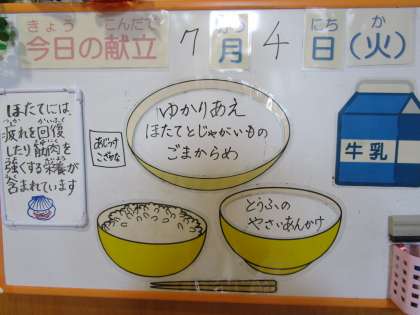 きょう こんだて
今日の献立
7
がつ
月
4
にち
日
か
(火)
ほたてには、
つか かいふく
疲れを回復
したり筋肉を
強くする栄養が
含まれています
あじつけ
こざかな
ゆかりあえ
ほたてとじゃがいもの
ごまからめ
牛乳
とうふの
やさいあんかけ